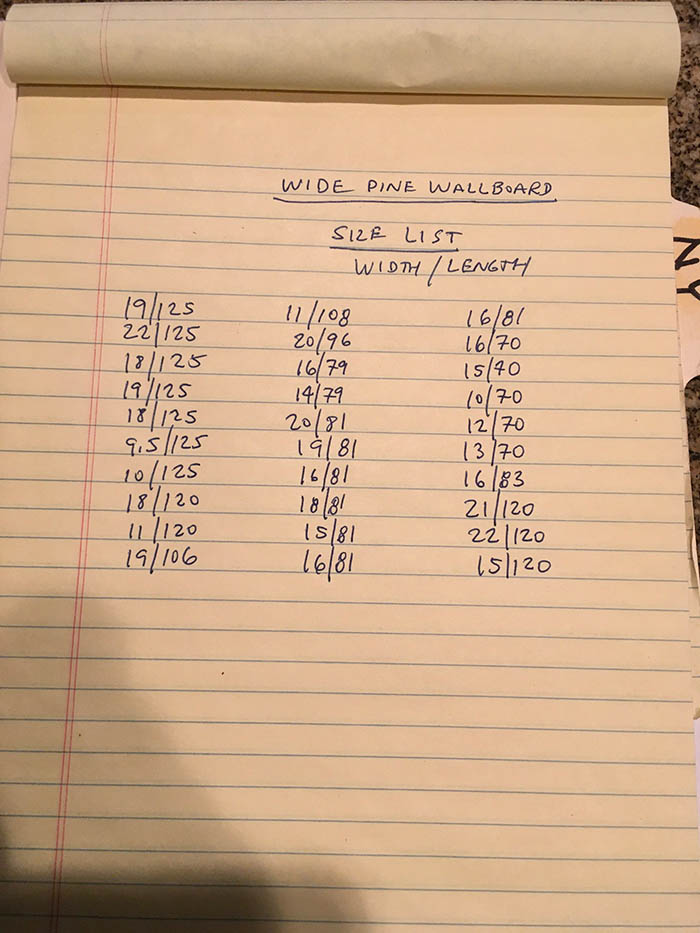 WIDE PINE WALLBOARD
SIZE LIST
WIDTH / LENGTH
19/125 11/108 16/81
22/125 20/96 16/70
18/125 16/79 15/40
19/125 14/79 10/70
18/125 20/81 12/70
9.5/125 19/81 13/70
10/125 16/81 16/83
18/120 18/81 21/120
11/120 15/81 22/120
19/106 16/81 15/120
NY